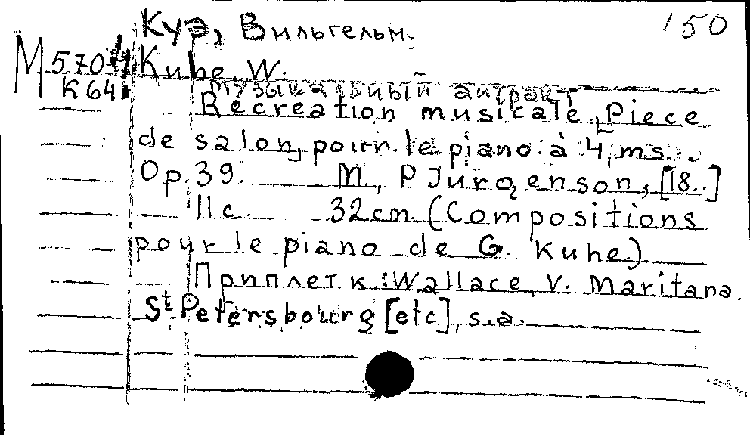 Куэ, Вильгельм. 150
М 570 Kuhe, W.
К 64 Музыкальный антракт
Recreation musicale. Piece
de salon, pour le piano à 4, ms.
Op. 39. M, P Jurgenson, [18..]
11 c 32 cm (Compositions
pour le piano de G. Kuhe)
Приплет к: Wallace, V. Maritana.
St Petersbourg [etc], s.a.